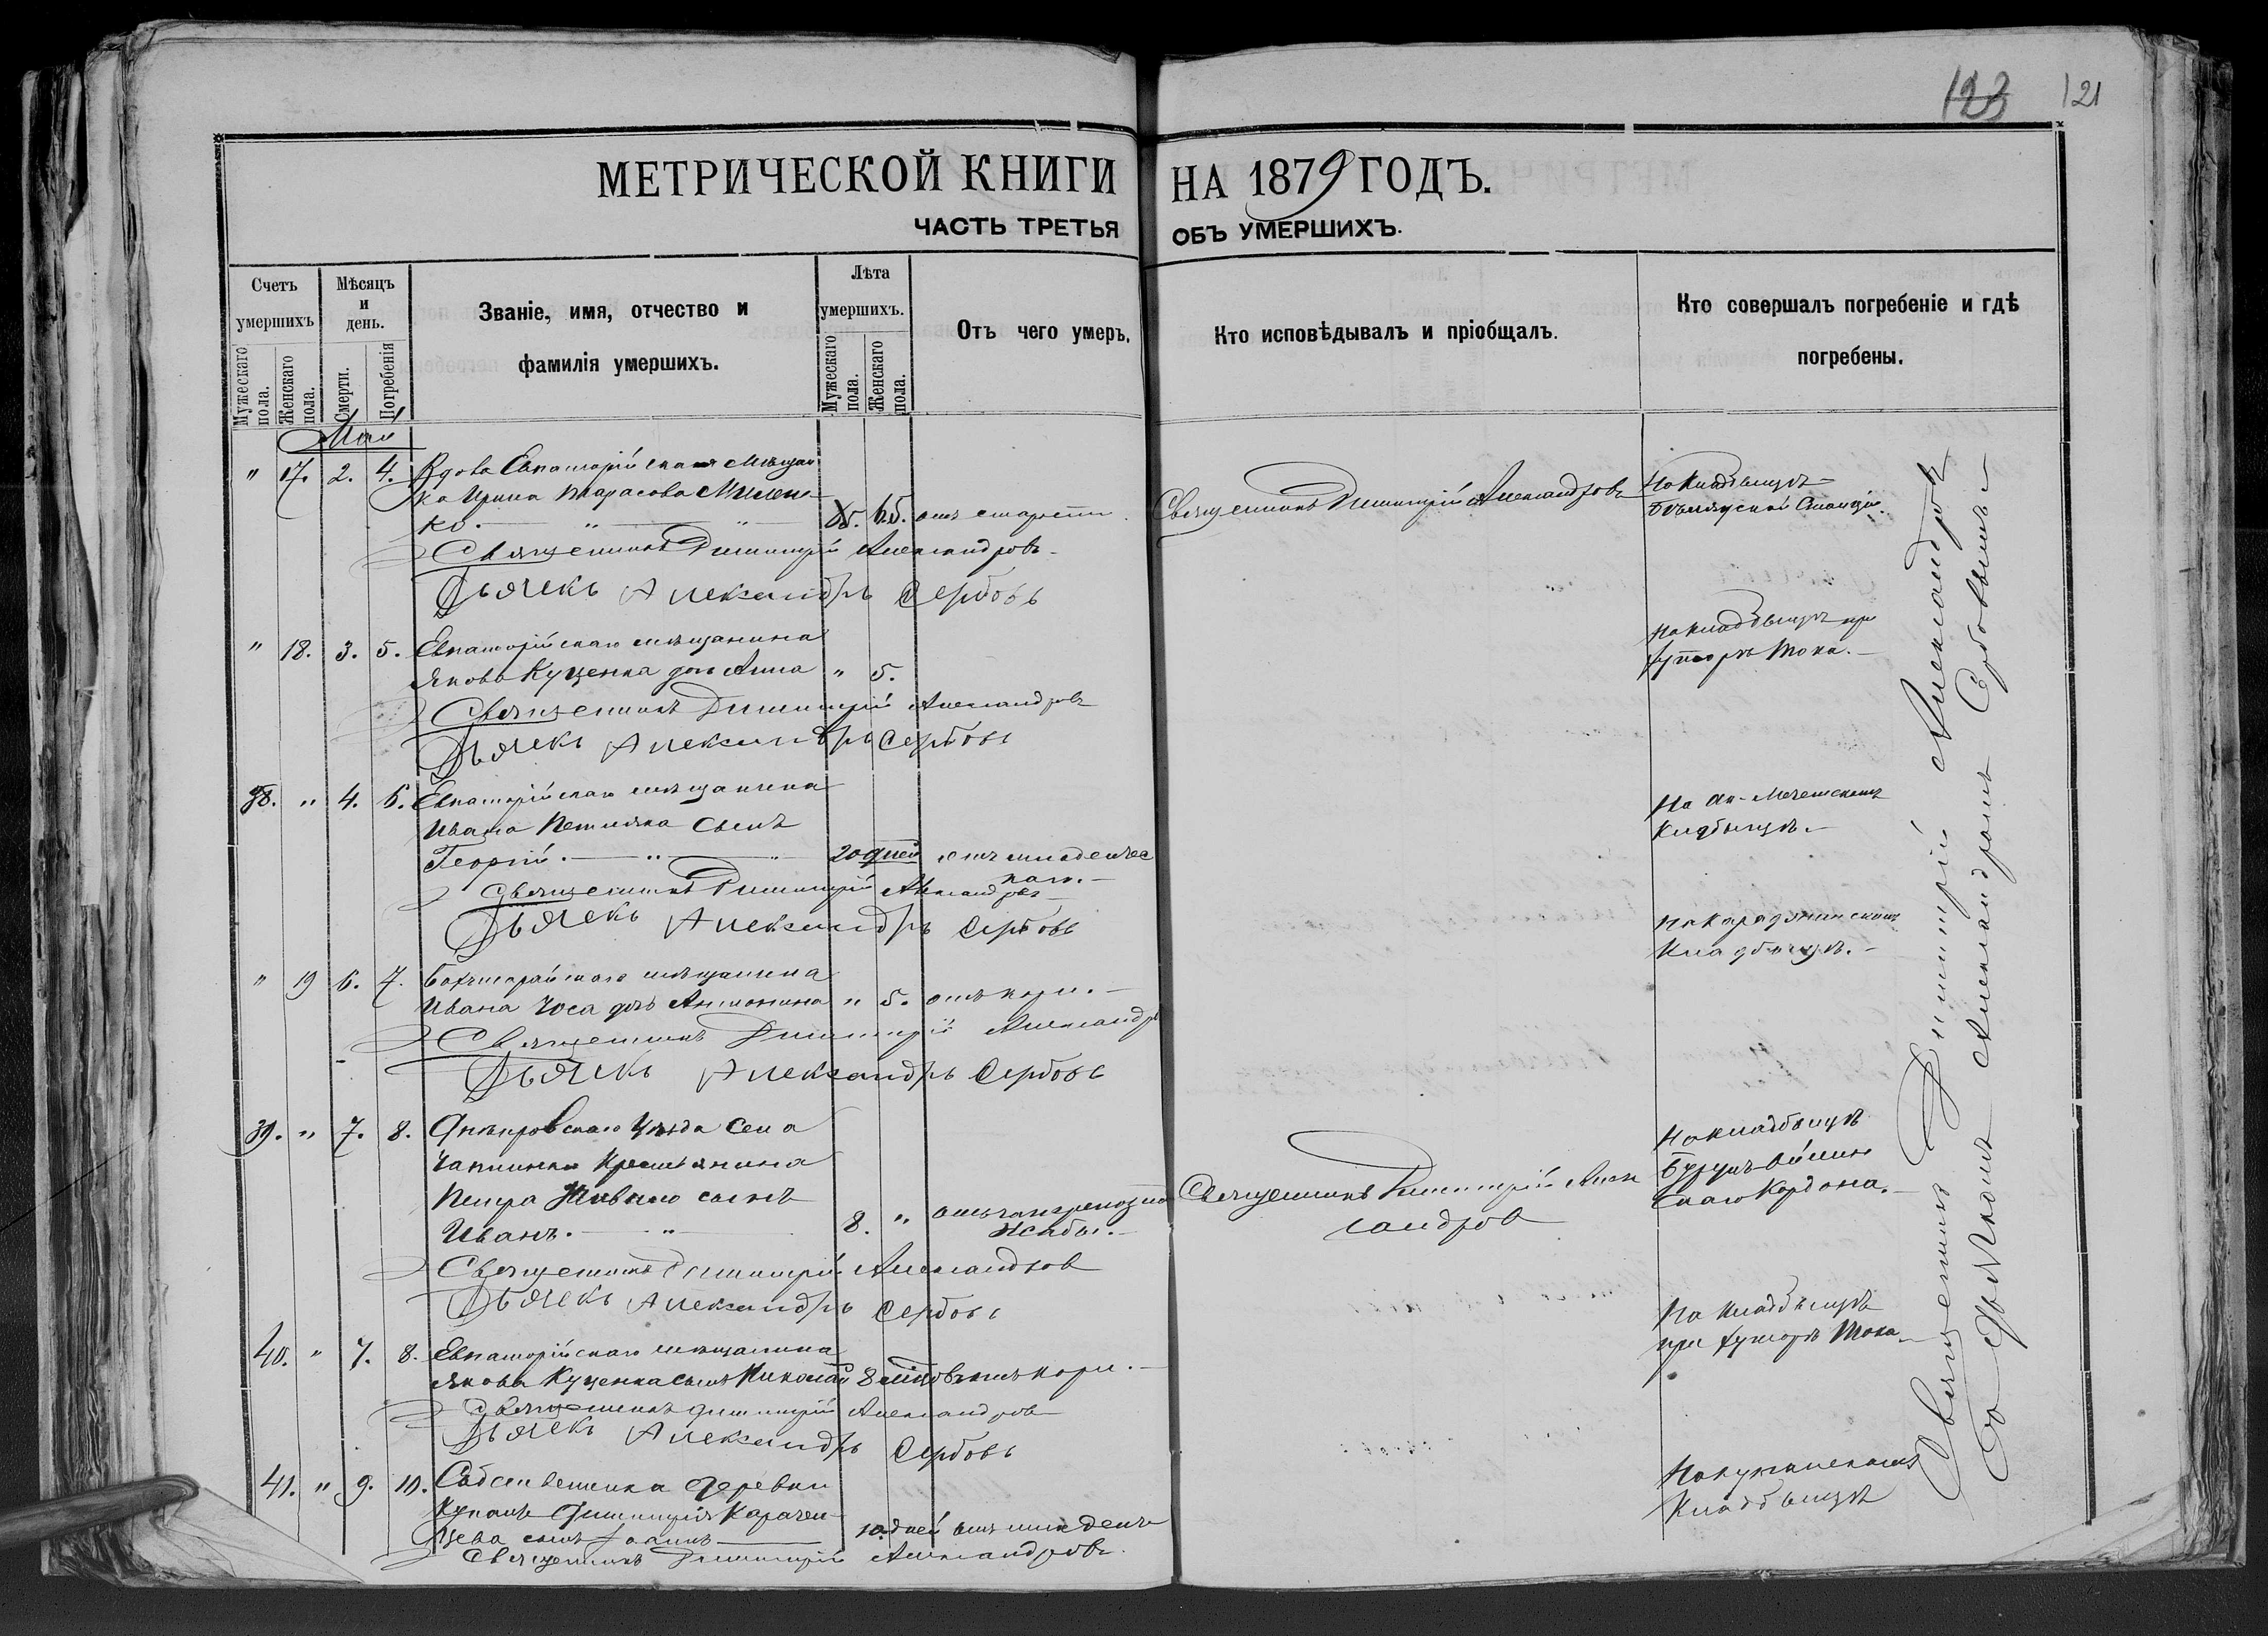 123 121
МЕТРИЧЕСКОЙ КНИГИ НА 1879 ГОДЪ.
ЧАСТЬ ТРЕТЬЯ ОБЪ УМЕРШИХЪ.
Счетъ умершихъ
Мужескаго пола.
Женскаго пола.
Мѣсяцъ и день.
Смерти.
Погребенія
Званіе, имя, отчество и фамилія умершихъ.
Лѣта умершихъ.
Мужескаго пола.
Женскаго пола.
Отъ чего умеръ.
Кто исповѣдывалъ и пріобщалъ.
Кто совершалъ погребеніе и гдѣ погребены.
Май
" 17. 2. 4. Вдова Евпаторійская мѣщан
ка Ирина Тарасова
ко. " " 65. отъ старости. Священникъ Димитрій Александровъ На кладбищѣ
Священникъ Димитрій Александровъ
Дьячекъ Александръ Сербовъ
" 18. 3. 5. Евпаторійскаго мѣщанина
Якова Куценка дочь Анна " 5. На кладбищѣ при
хуторѣ Тока.
Священникъ Димитрій Александровъ
Дьячекъ Александръ Сербовъ
38. " 4. 6. Евпаторійскаго мѣщанина
Ивана сынъ
Георгій. " " 20 дней отъ младенчес
каго. На Ак-Мечетскомъ
кладбищѣ.
Священникъ Димитрій Александровъ
Дьячекъ Александръ Сербовъ
" 19 6. 7. мѣщанина
Ивана Чоса дочь Антонина " 5. отъ кори. На
кладбищѣ.
Священникъ Димитрій Александр
Дьячекъ Александръ Сербовъ
39. " 7. 8. Днѣпровскаго Уѣзда села
Чаплинки Крестьянина
Петра сынъ
Иванъ. " 8. " отъ
жабы. Священникъ Димитрій Алек
сандров На кладбищѣ
скаго Кордона.
Священникъ Димитрій Александров
Дьячекъ Александръ Сербовъ
40. " 7. 8. Евпаторійскаго мѣщанина
Якова Куценка сынъ Николай 8 отъ кори. На кладбищѣ
при хуторѣ Тока
Священникъ Димитрій Александров
Дьячекъ Александръ Сербовъ
41. " 9. 10. Собственника деревни
Димитрія Карачен
цева сынъ Іоаннъ 10 дней отъ младенч
кладбищѣ
Священникъ Димитрій Александровъ.
Священникъ Димитрій Александров
со дьячкомъ Александромъ Сербовымъ